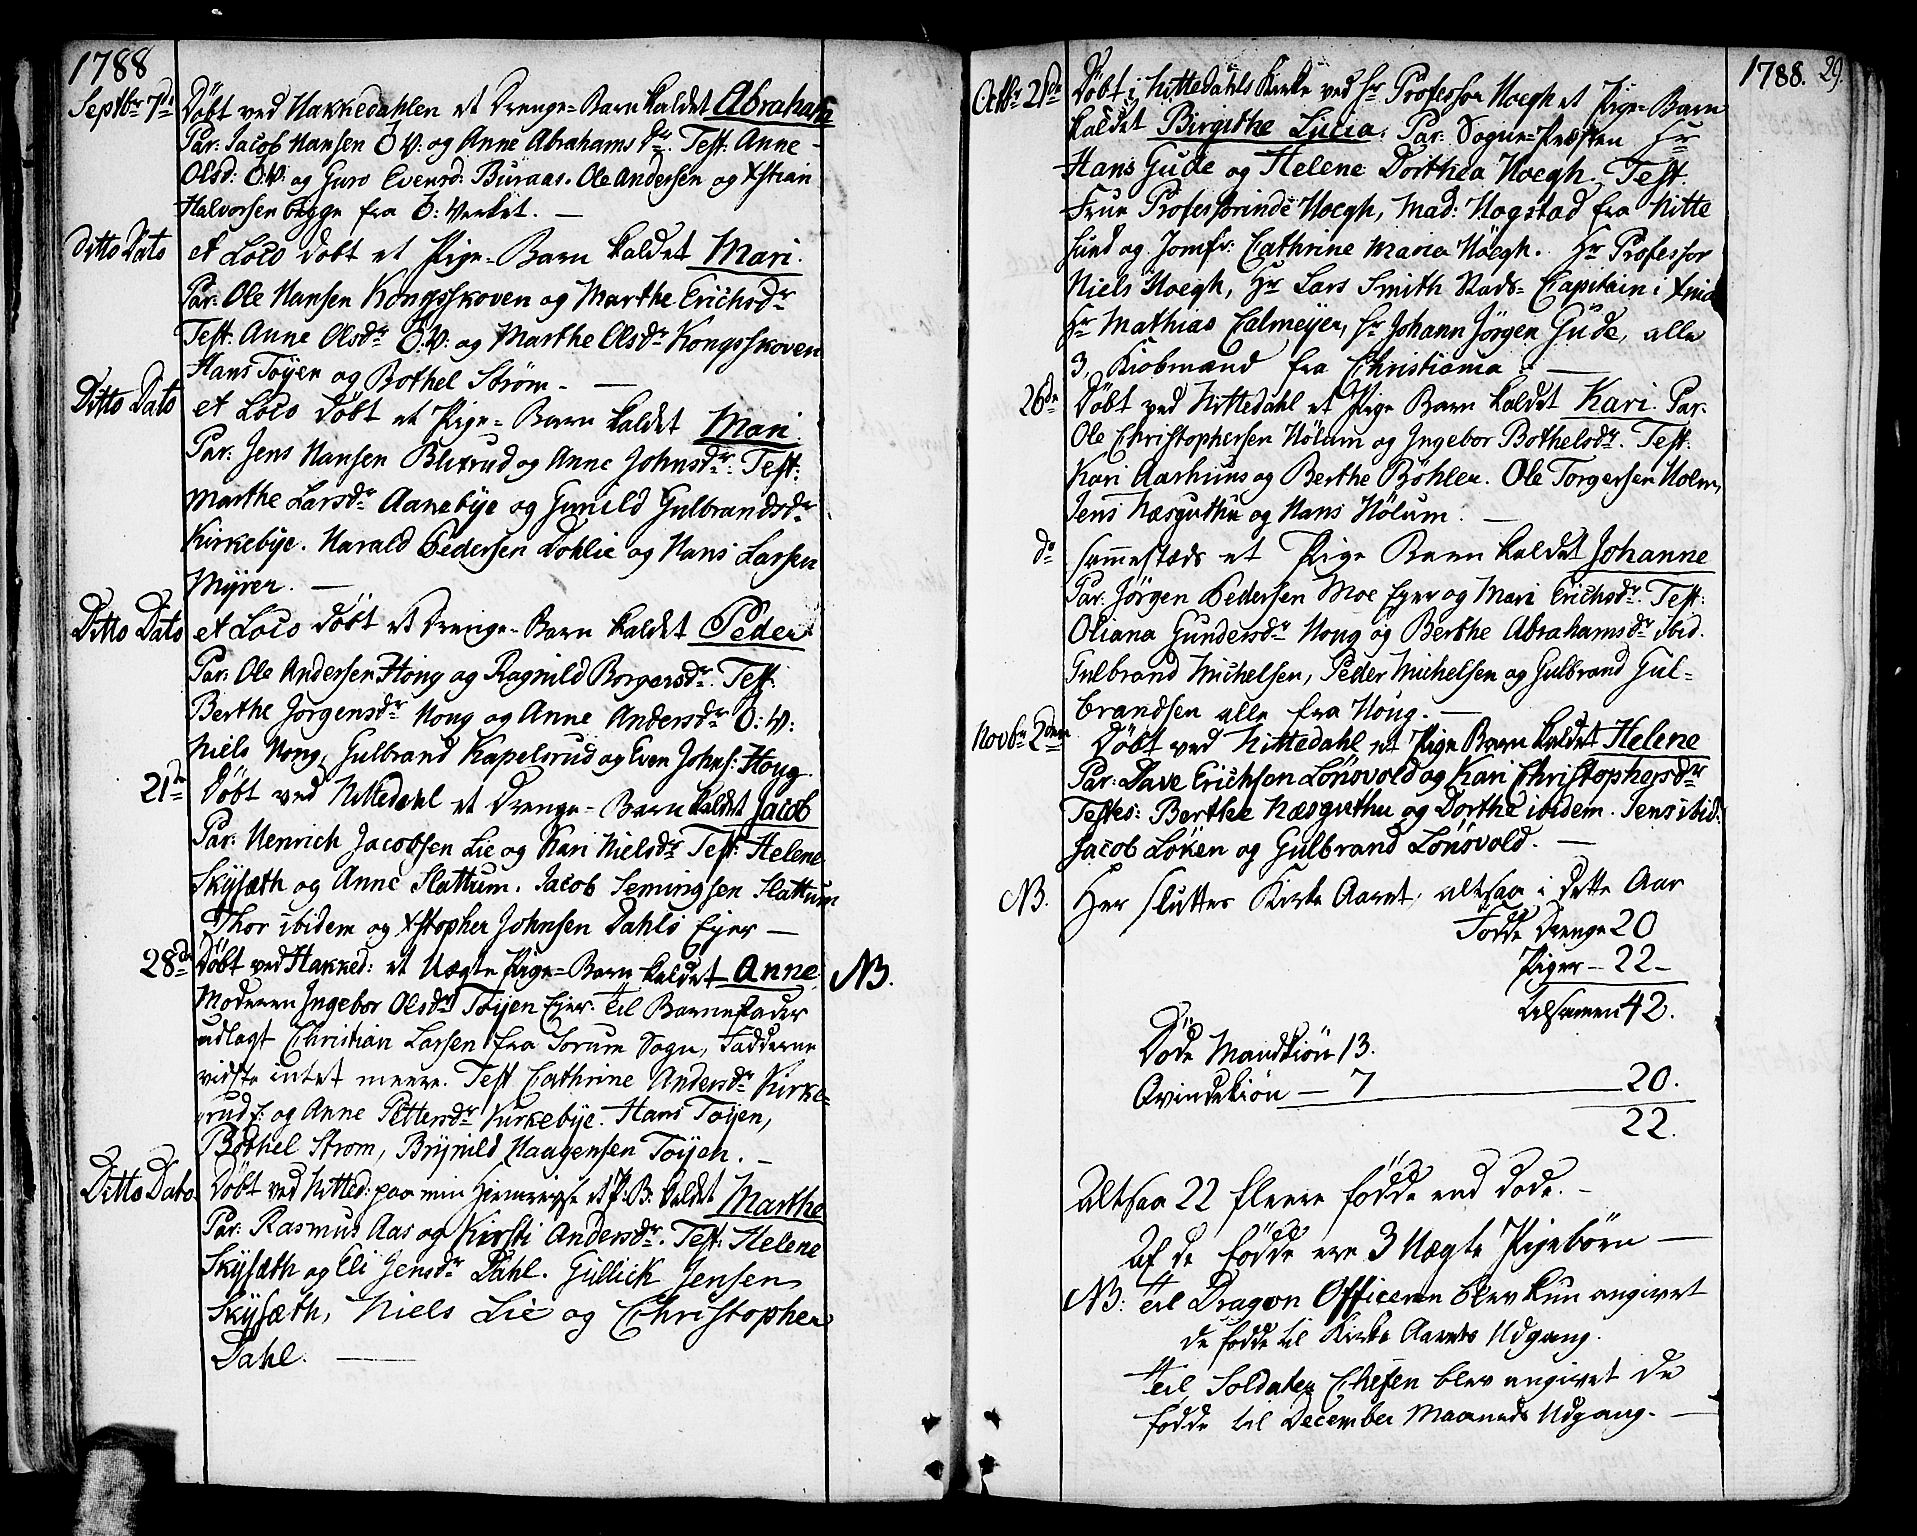 1788
Septbr 7de Döbt ved Hakkedahlen et Drenge-Barn kaldet Abraham
Par: Jacob Hansen O:V: og Anne Abrahams dr. Test: Anne
Olsd: O:V: og Guro Evensd: Buraas. Ole Andersen og Xstian
Halvorsen begge fra O: Verket. —
Ditto Dato et Loco döbt et Pige-Barn kaldet Mari.
Par: Ole Hansen Kongsskoven og Marthe Erichsdr
Test: Anne Olsdr O.V: og Marthe Olsdr Kongsskoven
Hans Töyen og Bothel Ström. —
Ditto Dato et Loco döbt et Pige-Barn kaldet Mari.
Par: Jens Hansen Blixrud og Anne Johnsdr. Test:
Marthe Larsdr Aanebye og Gunild Gulbrandsdr
Kirkebye. Harald Pedersen Dohlie og Hans Larsen
Myrer. —
Ditto Dato et Loco döbt et Drenge-Barn kaldet Peder
Par: Ole Andersen Höng og Ragnild Borgersdr. Test.
Berthe Jörgensdr Hong og Anne Andersdr O:V:
Niels Hong, Gulbrand Kapelsrud og Even Johns: Hong
21de Döbt ved Nittedahl et Drenge-Barn kaldet Jacob
Par: Henrich Jacobsen Lie og Kari Nielsdr Test: Helene
Skysæth og Anne Slattum. Jacob Semingsen Slattum
Thor ibidem og Xstopher Johnsen Dahls Ejer —
28de Döbt ved Hakked: et Uægte Pige-Barn kaldet Anne NB.
Moderen Ingebor Olsdr Töyen Ejer. Til Barnefader
udlagt Christian Larsen fra Sorum Sogn, Fadderne
vidste intet meere. Test Cathrine Andersdr Kirke-
rud: og Anne Pettersdr Kirkebye. Hans Töyen,
Bothel Strom, Brynild Haagensen Töyen. —
Ditto Dato Döbt ved Nitted: paa min Hiemreyse et P: B: kaldet Marthe
Par: Rasmus Aas og Kirsti Andersdr. Test: Helene
Skysæth og Eli Jensdr Dahl. Gullick Jensen
Skysæth, Niels Lie og Christopher
Dahl. —
1788. 29.
Octbr 21de Döbt i Nittedahls Kirke ved Hr Professor Hoegh et Pige-Barn
kaldet Birgithe Lucia. Par: Sogne-Præsten Hr
Hans Gude og Helene Dorthea Hoegh. Test.
Frue Professorinde Hoegh, Mad: Hogstad fra Nitte
sund og Jomfr: Cathrine Maria Höegh. Hr Professor
Niels Hoegh, Hr Lars Smith Stads-Capitain i
Hr Mathias Calmeyer, Hr Johann Jörgen Gude, alle
3, Kiöbmænd fra Christiania. —
26de Döbt ved Nittedahl et Pige Barn kaldet Kari. Par.
Ole Christophersen Hölum og Ingebor Bothelsdr. Test:
Kari Aarhuus og Berthe Böhler. Ole Torgersen Holm,
Jens Næsguthu og Hans Hölum. —
do sammestæds et Pige Barn kaldet Johanne
Par: Jörgen Pedersen Moe Ejer og Mari Erichsdr. Test:
Oliana Gundersdr Hong og Berthe Abrahamsdr ibid.
Gulbrand Michelsen, Peder Michelsen og Gulbrand Gul-
brandsen alle fra Höng. —
Novbr 2den Döbt ved Nittedahl et Pige Barn kaldet Helene
Par: Dave Erichsen Lönsvold og Kari Christophersdr
Testes: Berthe Næsguthu og Dorthe ibidem. Jens ibid:
Jacob Löken og Gulbrand Lönsvold. —
NB. Her sluttes Kirke Aaret, altsaa i dette Aar
Födde Drenge 20
Piger — 22 —
tilsamen 42.
Döde Mandkiön 13.
Qvindekiön — 7 20.
22.
Altsaa 22 fleere födde end döde. —
Af de födde ere 3 Uægte Pigebörn —
NB: Til Dragon Officeren blev kun angivet
de födde til Kirke Aarets Udgang.
Til Soldater Chefen blev angivet de
födde til December Maaneds Udgang. —